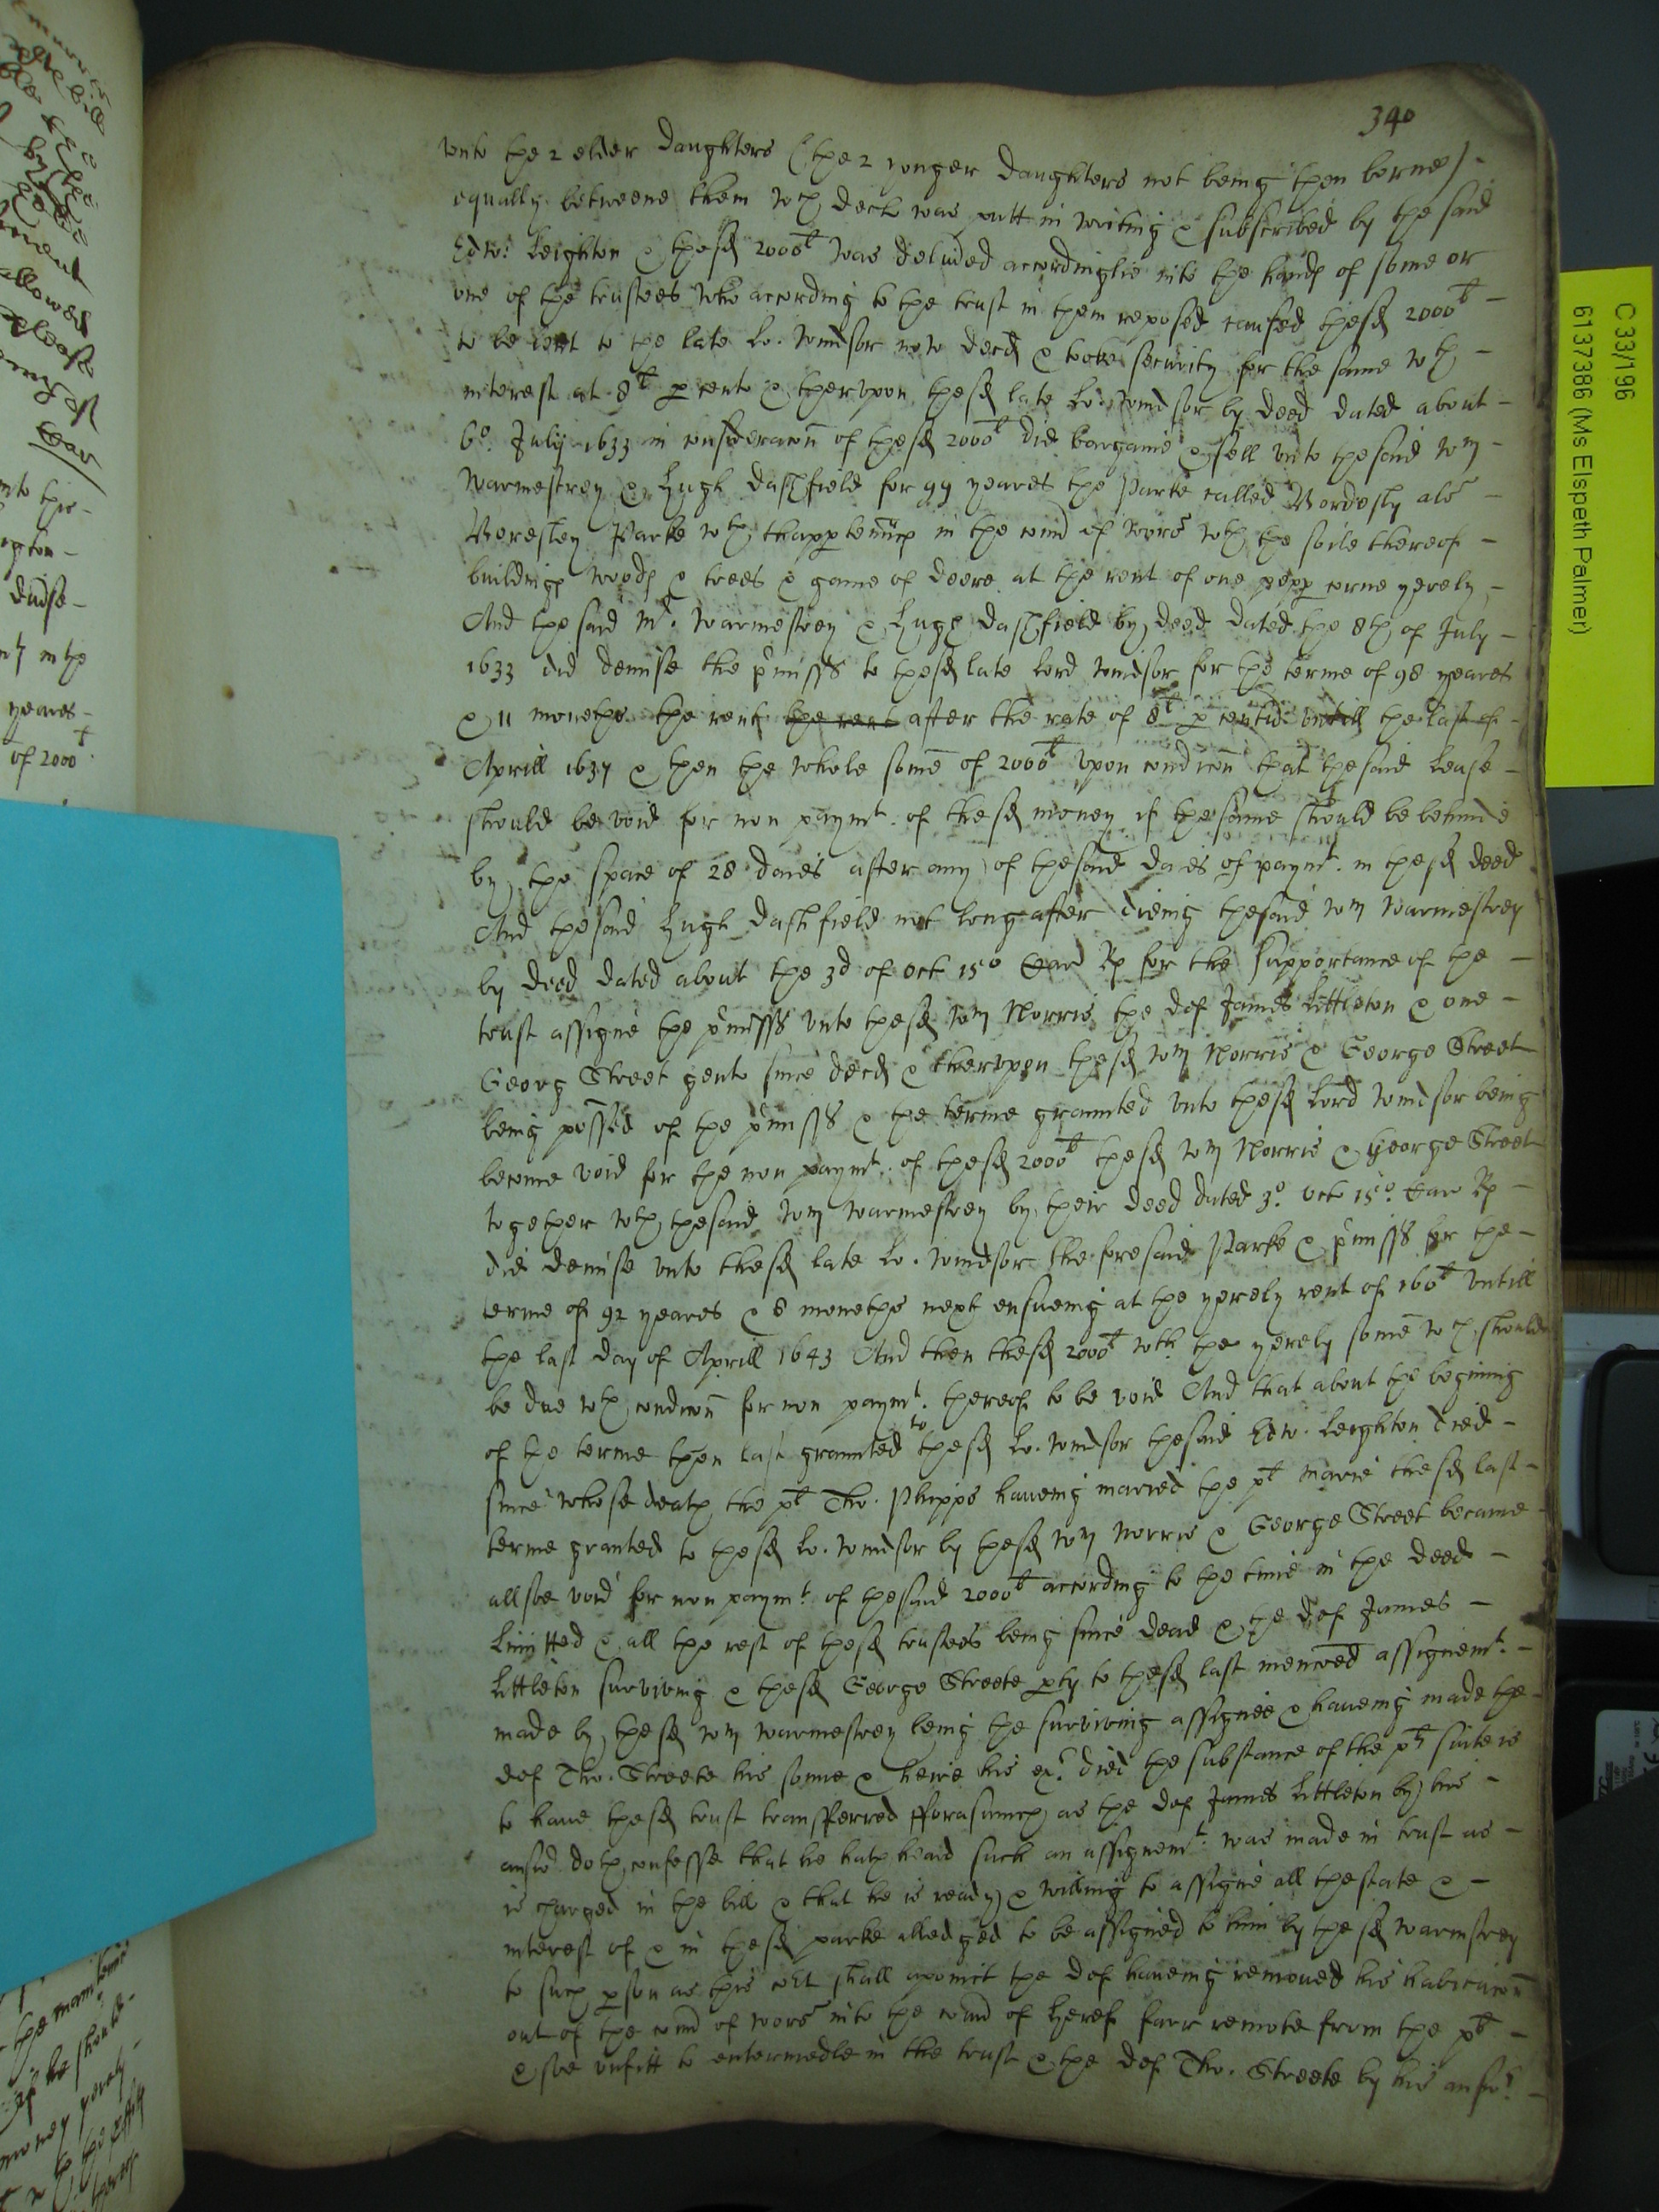 340
unto the 2 elder daughters (the 2 yonger daughters not being then borne)
equally betweene them wch decl was putt in writing & subscribed by the said
Edw: Leighton & thesd 2000l was deliued accordinglie into the hands of some or
one of the trustees who according to the trust in them reposed caused thesd 2000l
to be lent to the late Lo. Windsor now decd & tooke security for the same wth
interest at 8l p cento & therupon thesd late Lo. Windsor by deed dated about
6o July 1633 in consideracon of thesd 2000l did bargaine & sell unto thesaid Wm
Warmestrey & Hugh Dashfield for 99 yeares the Parke called als
Parke wth thapptennces in the count of Worc wth the soile thereof
buildings woods & trees & game of deere at the rent of one pepp corne yerely
And thesaid Mr. Warmestrey & Hugh Dashfield by deed dated the 8th of July
1633 did demise the pmisss to thesd late Lord Windsor for the terme of 98 yeares
& 11 moneths the rent the rent after the rate of 8l p centu untill the last of
Aprill 1637 & then the whole some of 2000l upon condicon that thesaid Lease
should be void for non paymt. of thesd money if the same should be behinde
by the space of 28 daies after any of thesaid daies of paymt. in thesd deed
And thesaid Hugh Dashfield not long after dieing thesaid Wm Warmestrey
by deed dated about the 3d of Oct 15o Car Rs for the supportance of the
trust assigne the pmisss unto thesd Wm Norris the def James Littleton & one
Georg Street gent since decd & therupon thesd Wm Norris & George Street
being possed of the pmisss & the terme graunted unto thesd Lord Windsor being
become void for the non paymt. of thesd 2000l thesd Wm Norris & George Street
together wth thesaid Wm Warmestrey by their deed dated 3o. Octo 15o. Car Rs
did demise unto thesd late Lo. Windsor the foresaid Parke & pmisss for the
terme of 92 yeares & 8 monethes next ensueing at the yerely rent of 160l untill
the last day of Aprill 1643 And then thesd 2000l wth the yerely some wch should
be due wth condicon for non paymt. thereof to be void And that about the begining
of the terme then last graunted to thesd Lo. Windsor thesaid Edw. Leighton died
since whose death the plt Tho. Phipps haueing maried the plt Marie thesd last
terme granted to thesd Lo. Windsor by thesd Wm Norris & George Street became
allsoe void for non paymt. of thesaid 2000l according to the time in the deed
Limitted & all the rest of thesd trustees being since dead & the def James
Littleton surviving & thesd George Streete pty to thesd last menconed assignemt.
made by thesd Wm Warmestrey being the surviving assignee & haueing made the
def Tho. Streete his sonne & heire his exr. died the substance of the plts suite is
to haue thesd trust transferred fforasmuch as the def James Littleton by his
answ doth confesse that he hath heard such an assignemt. was made in trust as
is charged in the bill & that he is ready & willing to assigne all thestate &
interest of & in thesd parke alledged to be assigned to him by thesd Warmstrey
to such pson as this Cort shall apoint the def haueing removed his habitacon
out of the count of Worc into the count of Heref farr remote from the plt
& soe unfitt to entermedle in the trust & the def Tho. Streete by his answr.
C 33/196
6137386 (Ms Elspeth Palmer)
of 2000
yeares
allowed